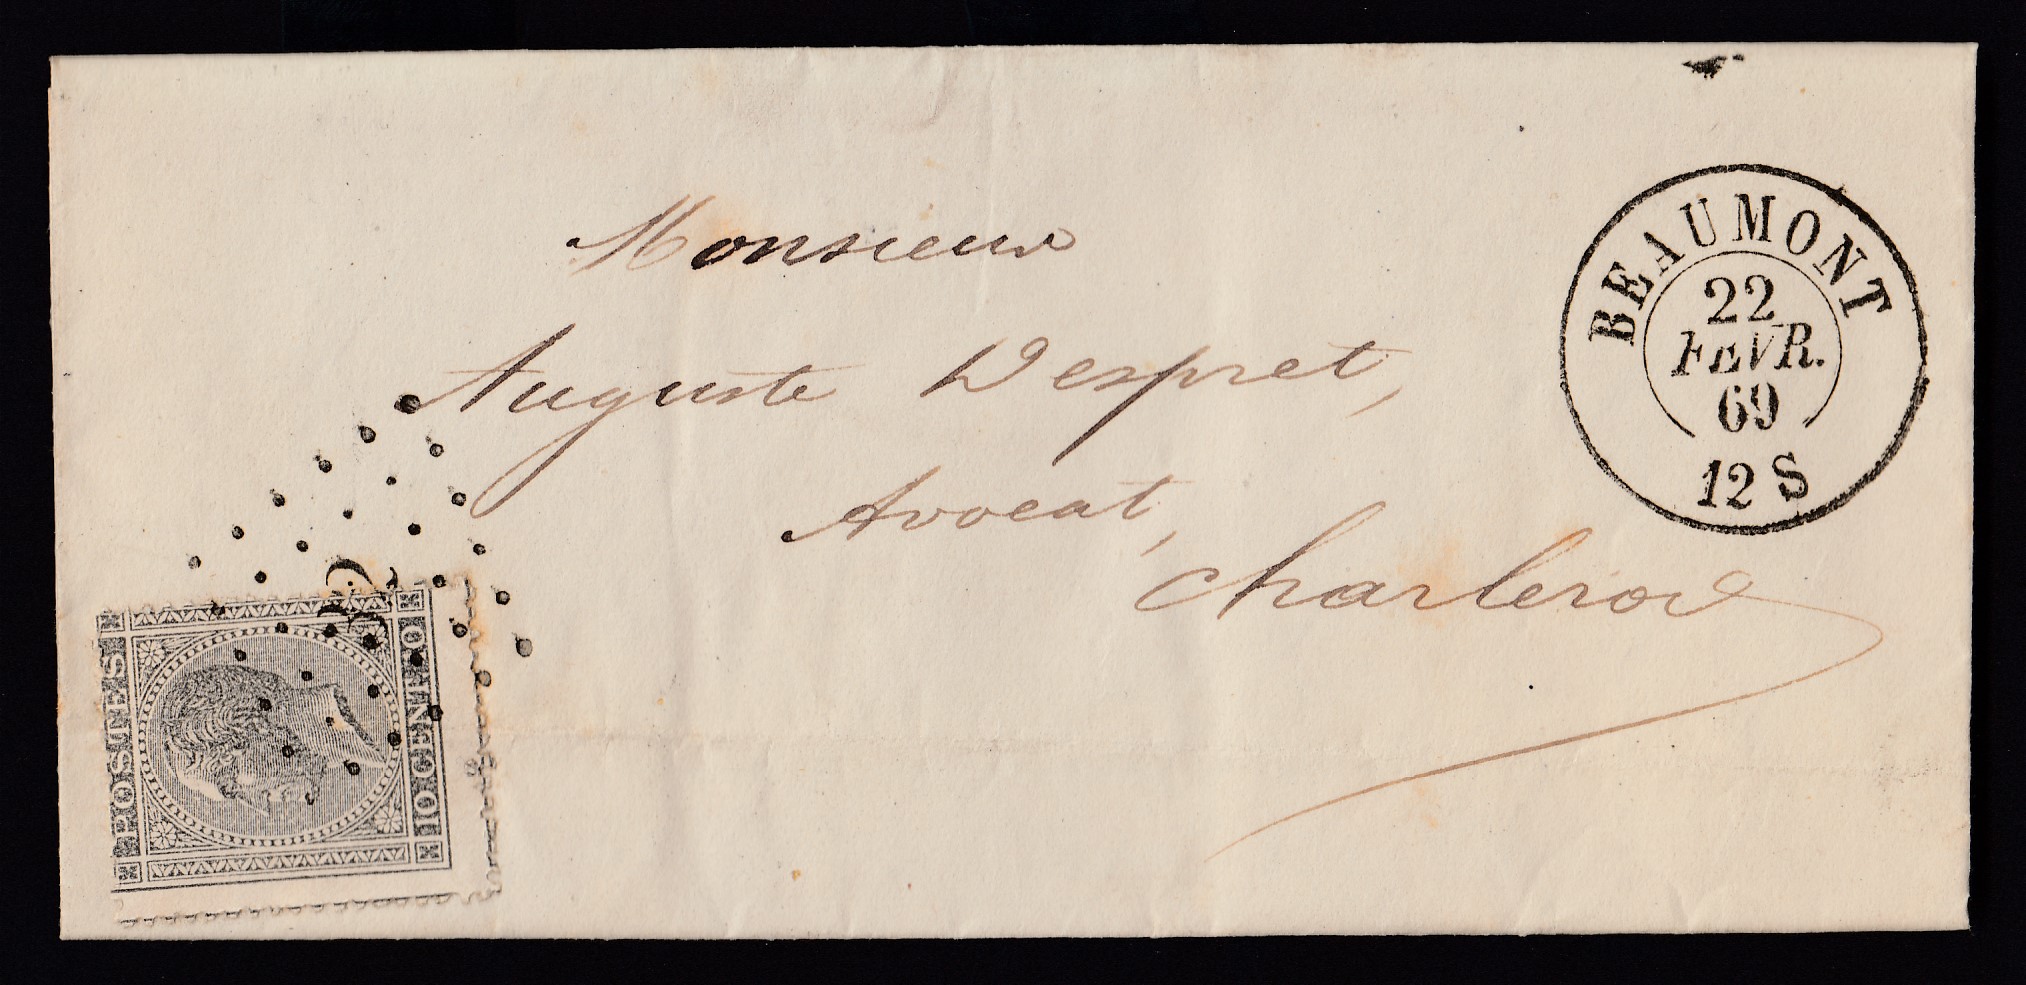 Monsieur
Auguste Despret,
Avocat,
Charleroi
BEAUMONT
22
FEVR.
69
12 S
POSTES
10 CENT. 10